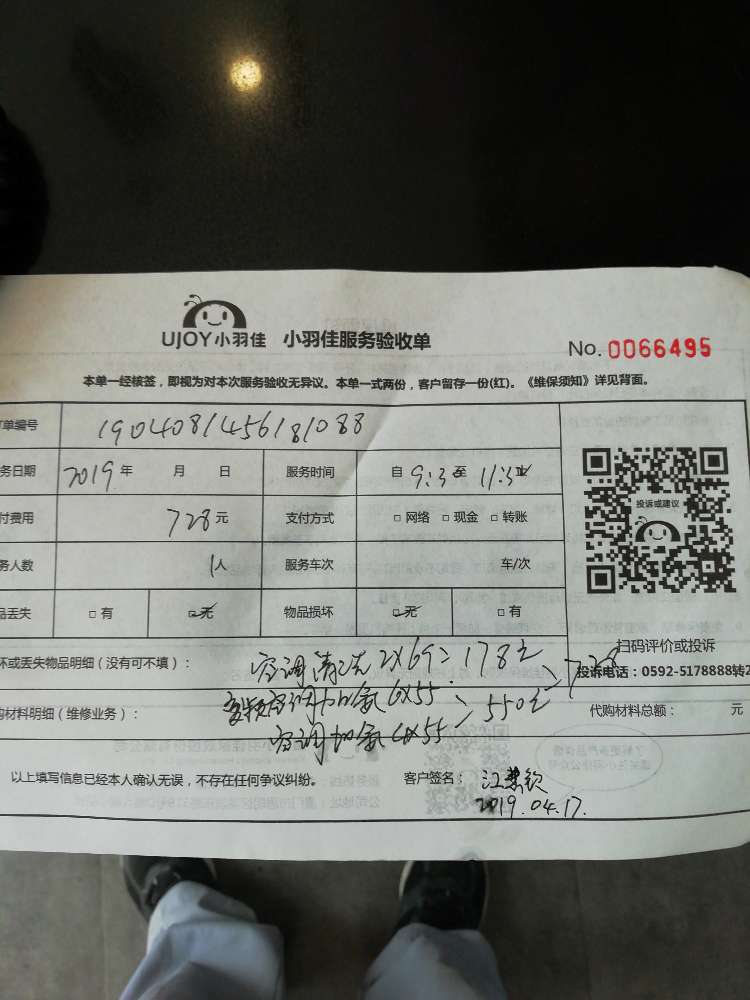 UJOY小羽佳 小羽佳服务验收单
No. 0066495
本单一经核签，即视为对本次服务验收无异议。本单一式两份，客户留存一份(红)。《维保须知》详见背面。
单编号 1904081456181088
务日期 2019 年 月 日 服务时间 自 9:30 至 11:30
付费用 728 元 支付方式 □ 网络 □ 现金 □ 转账
务人数 1人 服务车次 车/次
品丢失 □ 有 □ 无 物品损坏 □ 无 □ 有
投诉或建议
扫码评价或投诉
投诉电话：0592-5178888转2
坏或丢失物品明细（没有可不填）： 空调清洗 2X69=178元
728
变频空调加氨 6X55
550元
购材料明细（维修业务）： 空调加氨 4X55
代购材料总额： 元
以上填写信息已经本人确认无误，不存在任何争议纠纷。 客户签名： 江慧钦
2019.04.17.